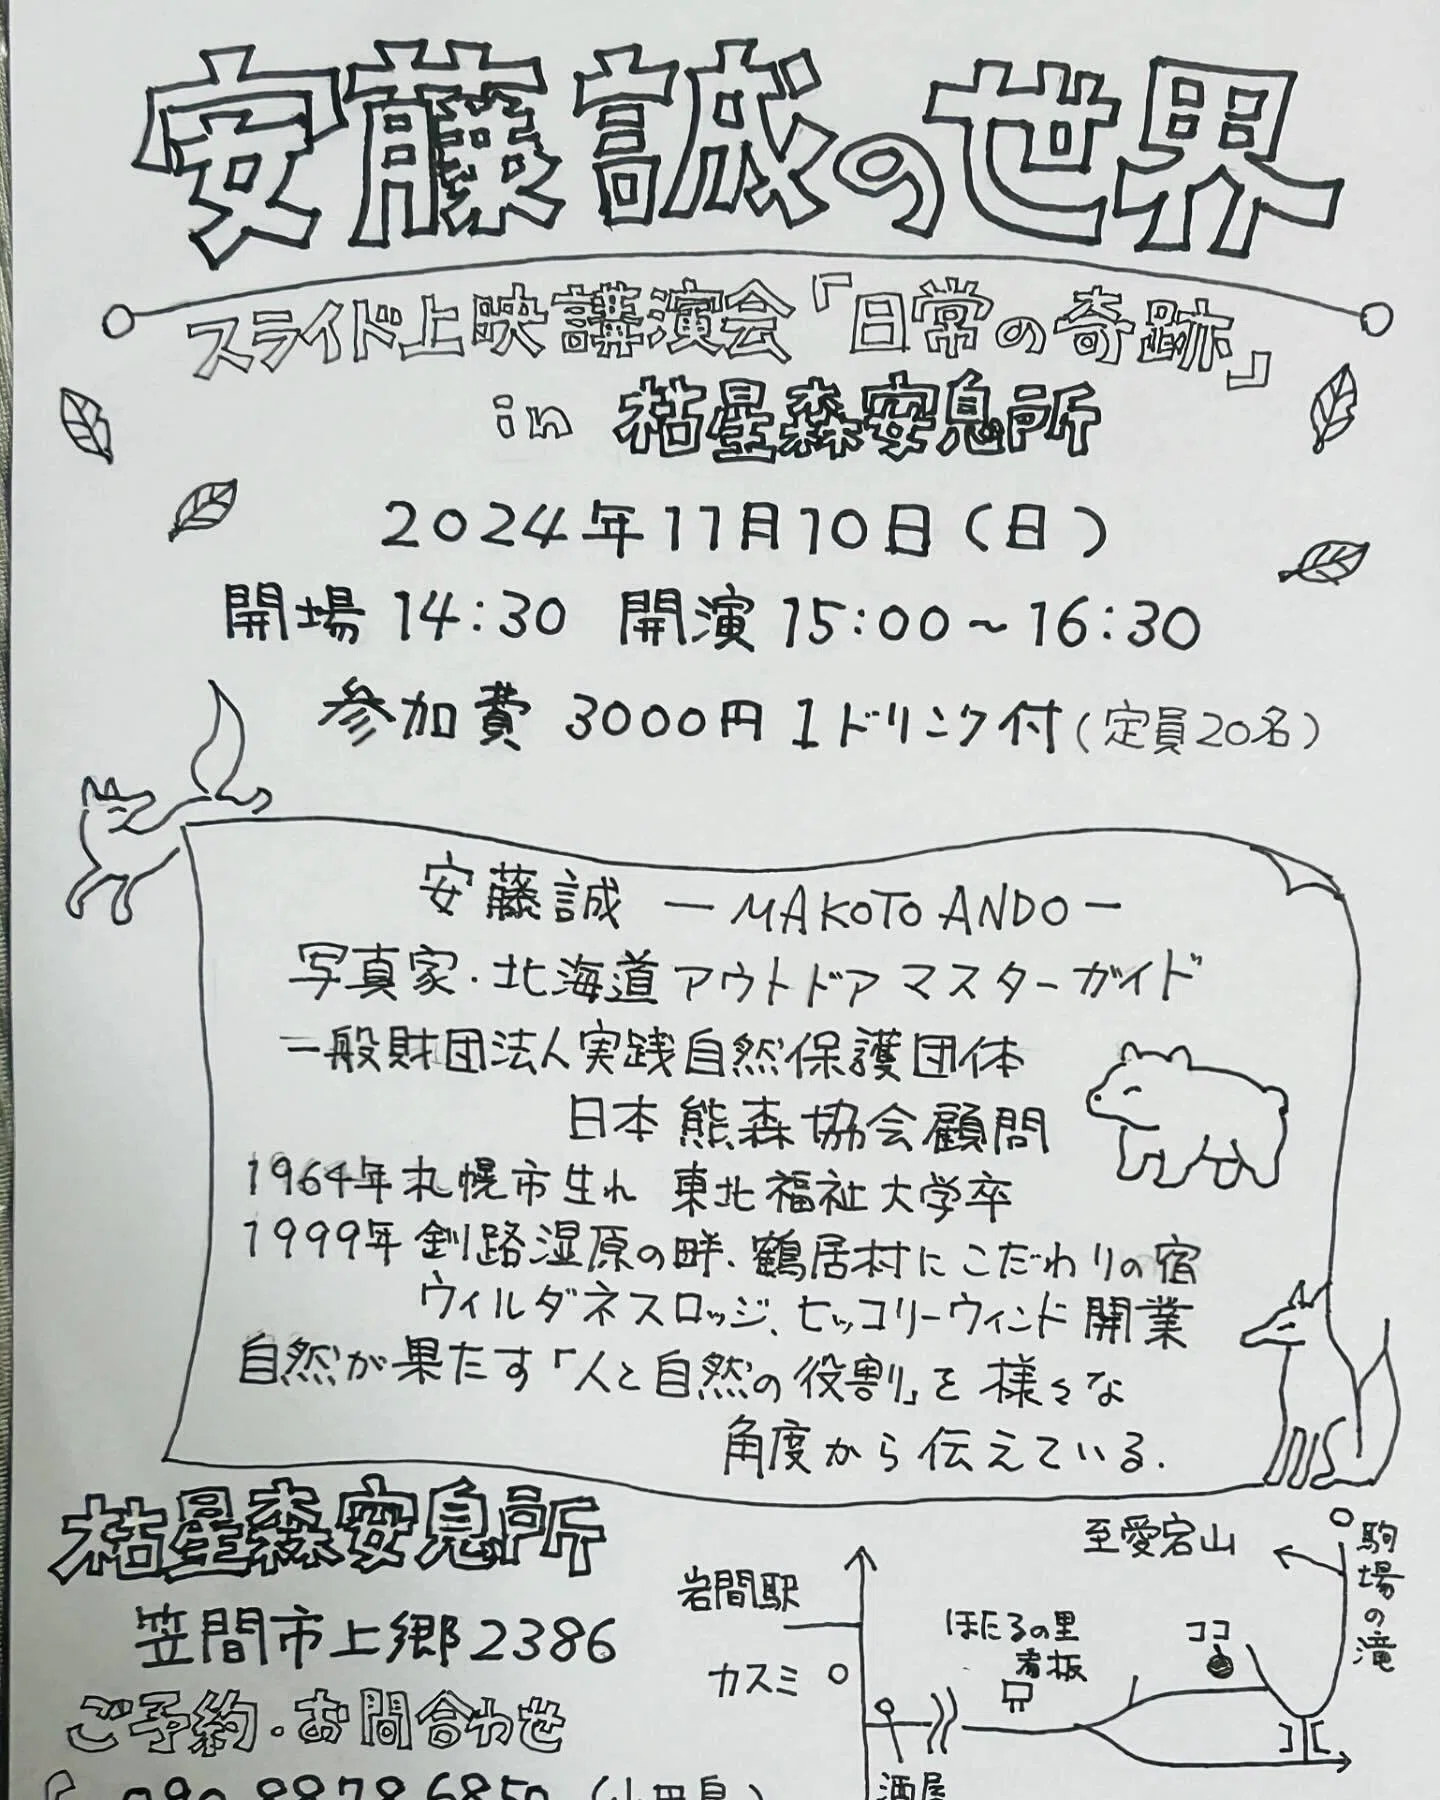 安藤誠の世界
スライド上映講演会「日常の奇跡」
in 枯星森安息所
2024年11月10日(日)
開場 14:30 開演 15:00~16:30
参加費 3000円 1ドリンク付(定員20名)
安藤誠 ー MAKOTO ANDO ー
写真家・北海道アウトドアマスターガイド
一般財団法人実践自然保護団体
日本熊森協会顧問
1964年札幌市生れ 東北福祉大学卒
1999年釧路湿原の畔、鶴居村にこだわりの宿
ウィルダネスロッジ、ヒッコリーウィンド開業
自然が果たす「人と自然の役割」を様々な
角度から伝えている.
枯星森安息所
笠間市上郷2386
ご予約・お問合わせ
至愛宕山
駒場の滝
岩間駅
ほたるの里
看板
ココ
カスミ
酒屋